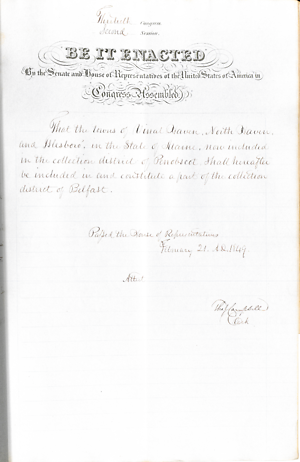 Thirtieth Congress.
Second Session.
BE IT ENACTED
By the Senate and House of Representatives of the United States of America in
Congress Assembled
That the towns of Vinal Haven, North Haven
and Islesboro', in the State of Maine, now included
in the collection district of Penobscot, shall hereafter
be included in and constitute a part of the collection
district of Belfast.
Passed the House of Representatives
February 21. A.D. 1849.
Attest
Tho. J. Campbell
Clerk